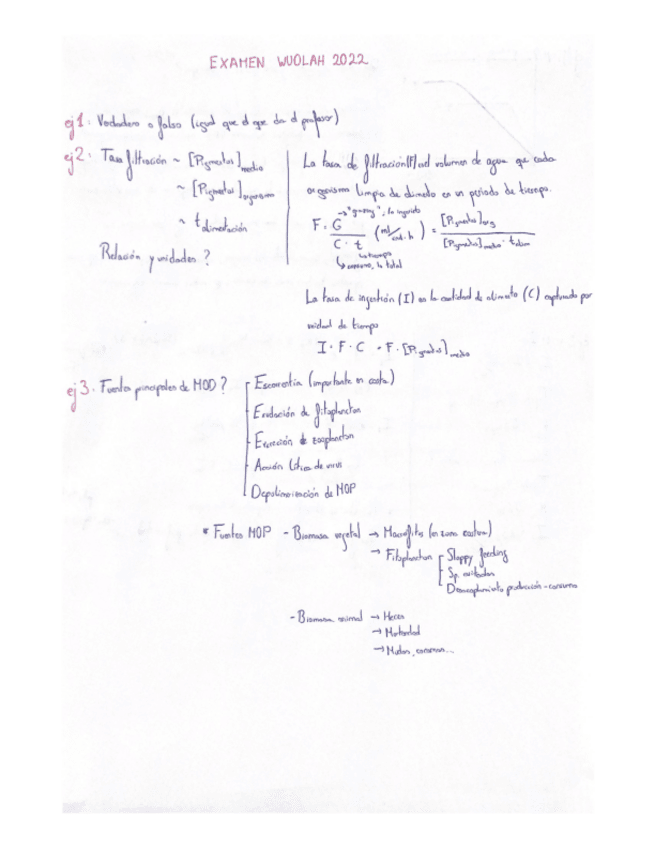 EXAMEN WUOLAH 2022
ej1. Verdadero o falso (igual que el que da el profesor)
ej2. Tasa filtración ~ [Pigmentos]medio
~ [Pigmentos]organismo
~ t alimentación
Relación y unidades?
La tasa de filtración (F) es el volumen de agua que cada
organismo limpia de alimento en un periodo de tiempo.
→ "grazing", lo ingerido
F = G / C · t (ml/ind. h) = [Pigmentos]org / [Pigmentos]medio · t alim
↳ tiempo
↳ consumo, lo total
La tasa de ingestión (I) es la cantidad de alimento (C) capturado por
unidad de tiempo
I = F · C = F · [Pigmentos]medio
ej3. Fuentes principales de MOD?
Escorrentía (importante en costa)
Exudación de fitoplancton
Excreción de zooplancton
Acción lítica de virus
Depolimerización de MOP
* Fuentes MOP - Biomasa vegetal → Macrófitos (en zona costera)
→ Fitoplancton
Sloppy feeding
Sp. evitadas
Desacoplamiento producción-consumo
- Biomasa animal → Heces
→ Mortandad
→ Mudas, ...